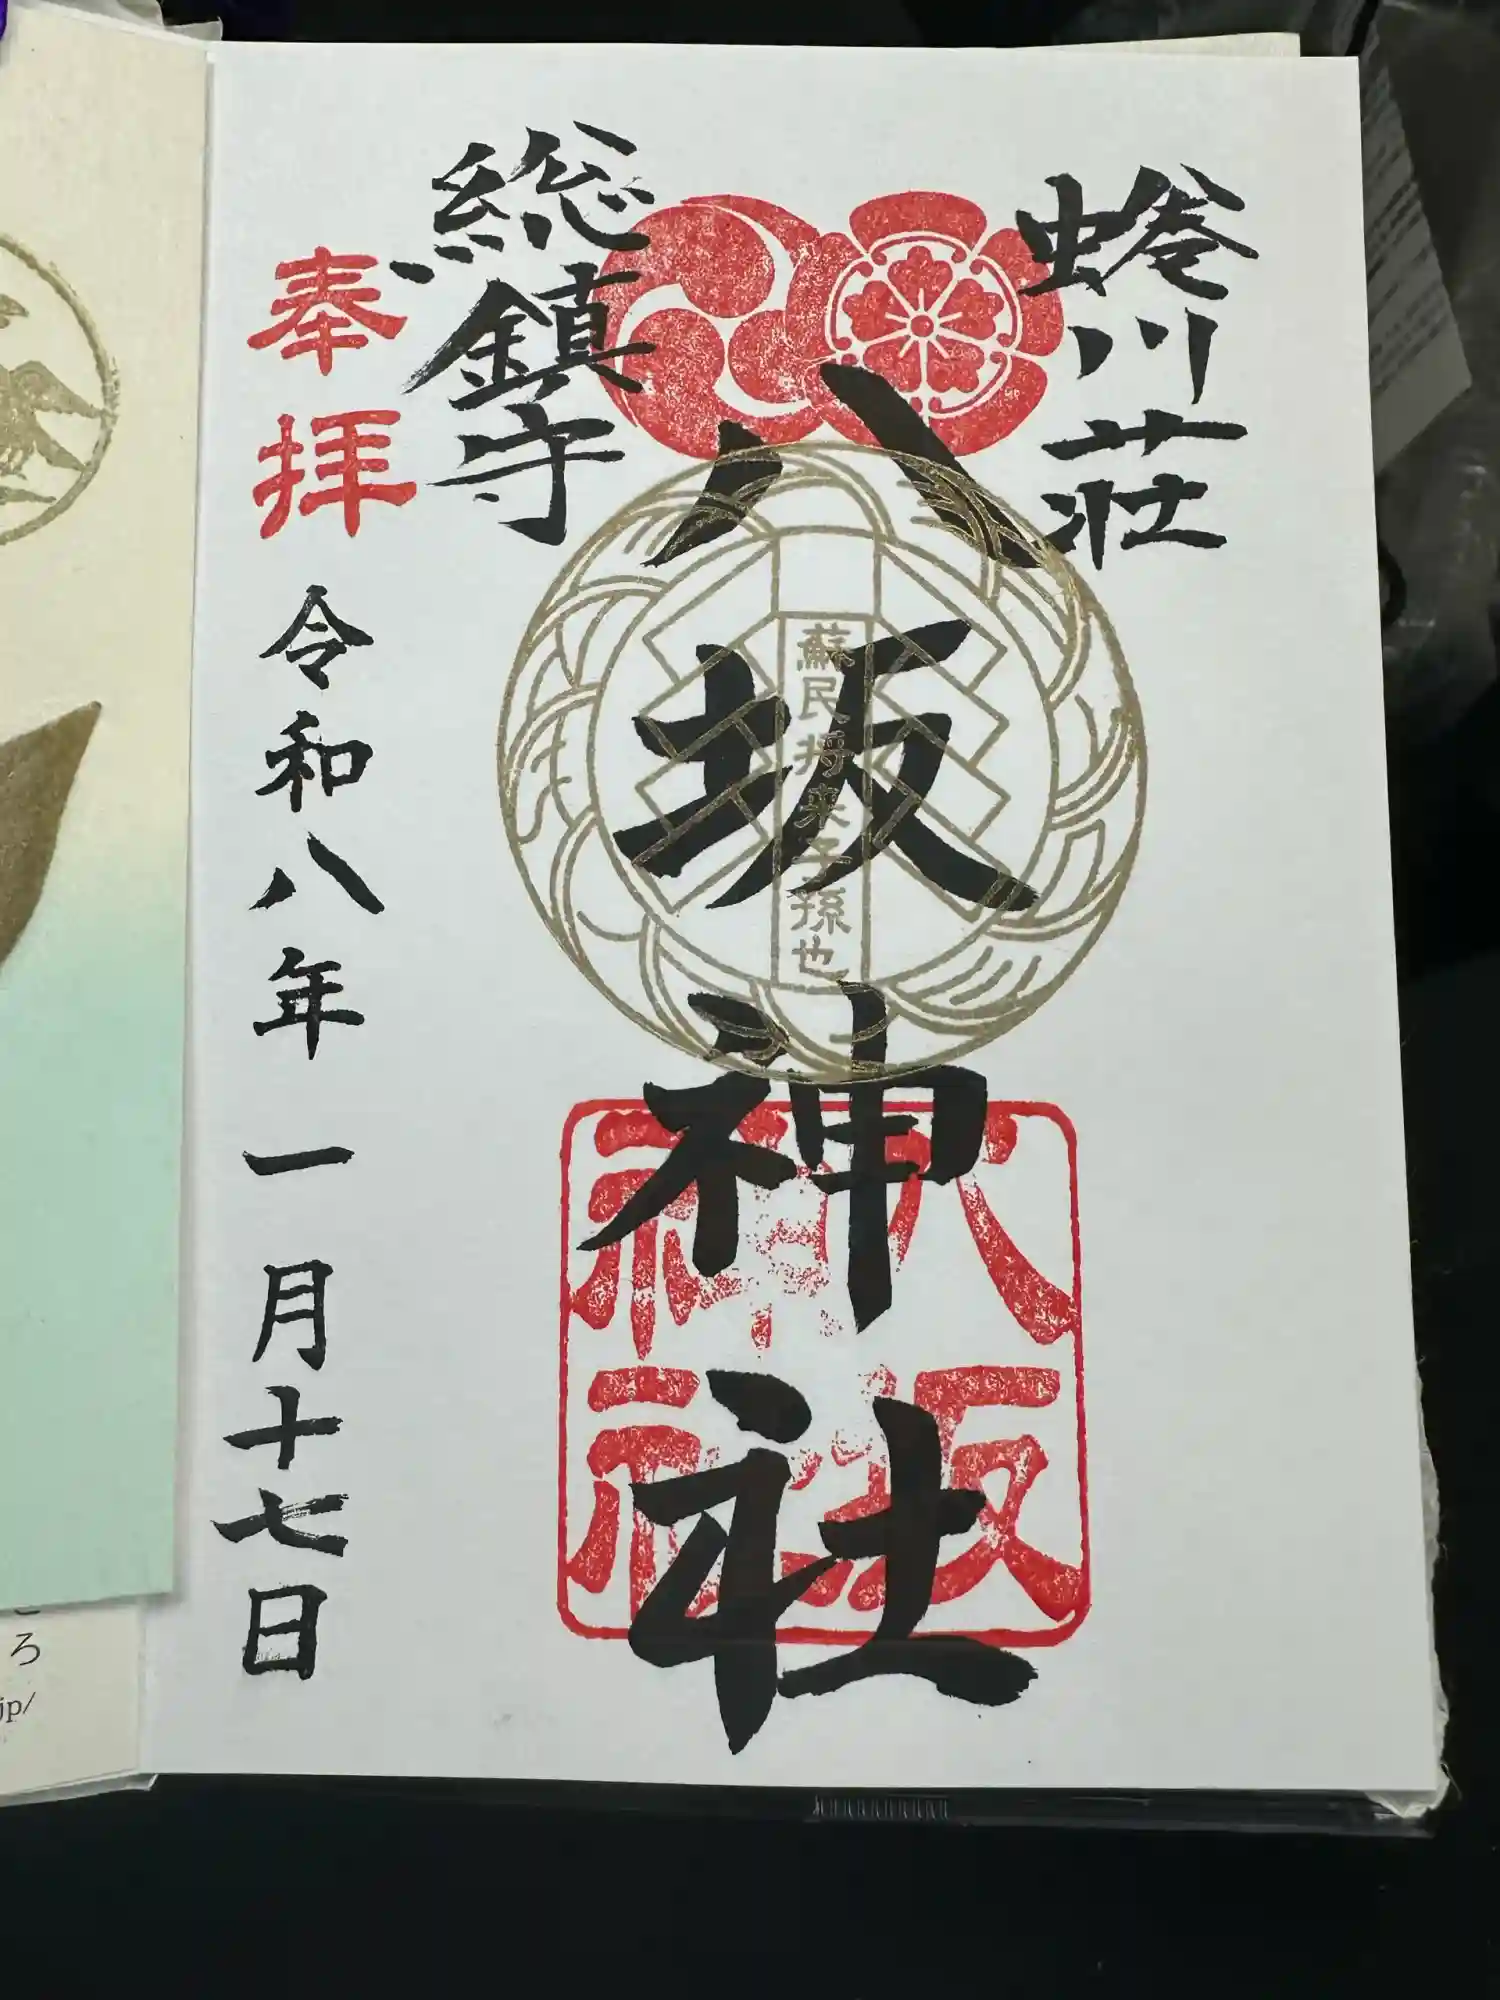 蜷川荘
八坂神社
蘇民将来子孫也
八坂
神社
総鎮守
奉拝
令和八年一月十七日
ろ
jp/